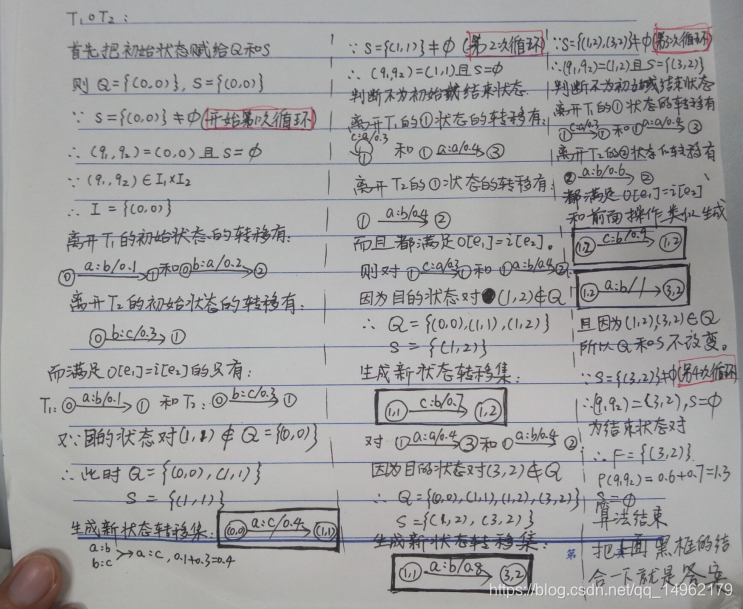 T₁∘T₂:
首先把初始状态赋给Q和S
则 Q={(0,0)}, S={(0,0)}
∵ S={(0,0)}≠φ(开始第1次循环)
∴ (q₁,q₂)=(0,0) 且 S=φ
∵ (q₁,q₂)∈I₁×I₂
∴ I={(0,0)}
离开T₁的初始状态的转移有:
⓪ a:b/0.1 → ① 和 ⓪ b:a/0.2 → ②
离开T₂的初始状态的转移有:
⓪ b:c/0.3 → ①
而满足o[e₁]=i[e₂]的只有:
T₁: ⓪ a:b/0.1 → ① 和 T₂: ⓪ b:c/0.3 → ①
又∵目的状态对(1,1)∉Q={(0,0)}
∴ 此时 Q={(0,0),(1,1)}
S={(1,1)}
生成新状态转移集: (0,0) a:c/0.4 → (1,1)
a:b
b:c → a:c, 0.1+0.3=0.4
∵ S={(1,1)}≠φ(第2次循环)
∴ (q₁,q₂)=(1,1)且S=φ
判断不为初始或结束状态
离开T₁的①状态的转移有:
c:a/0.3
① 和 ① a:a/0.4 → ③
离开T₂的①状态的转移有:
① a:b/0.4 → ②
而且都满足o[e₁]=i[e₂]。
则对 ① c:a/0.3 → ① 和 ① a:b/0.4 → ②
因为目的状态对(1,2)∉Q
∴ Q={(0,0),(1,1),(1,2)}
S={(1,2)}
生成新状态转移集:
(1,1) c:b/0.7 → (1,2)
对 ① a:a/0.4 → ③ 和 ① a:b/0.4 → ②
因为目的状态对(3,2)∉Q
∴ Q={(0,0),(1,1),(1,2),(3,2)}
S={(1,2),(3,2)}
生成新状态转移集:
(1,1) a:b/0.8 → (3,2)
∵S={(1,2),(3,2)}≠φ(第3次循环)
∴(q₁,q₂)=(1,2)且S={(3,2)}
判断不为初始或结束状态
离开T₁的①状态的转移有
① c:a/0.3 → ① 和 ① a:a/0.4 → ③
离开T₂的②状态的转移有
② a:b/0.6 → ②
都满足o[e₁]=i[e₂]
和前面操作类似生成
(1,2) c:b/0.9 → (1,2)
(1,2) a:b/1 → (3,2)
且因为(1,2),(3,2)∈Q
所以Q和S不改变。
∵S={(3,2)}≠φ(第4次循环)
∴(q₁,q₂)=(3,2),S=φ
为结束状态对
∴F={(3,2)}
ρ(q₁,q₂)=0.6+0.7=1.3
S=φ
算法结束
第
把上面黑框的结
合一下就是答案
https://blog.csdn.net/qq_14962179